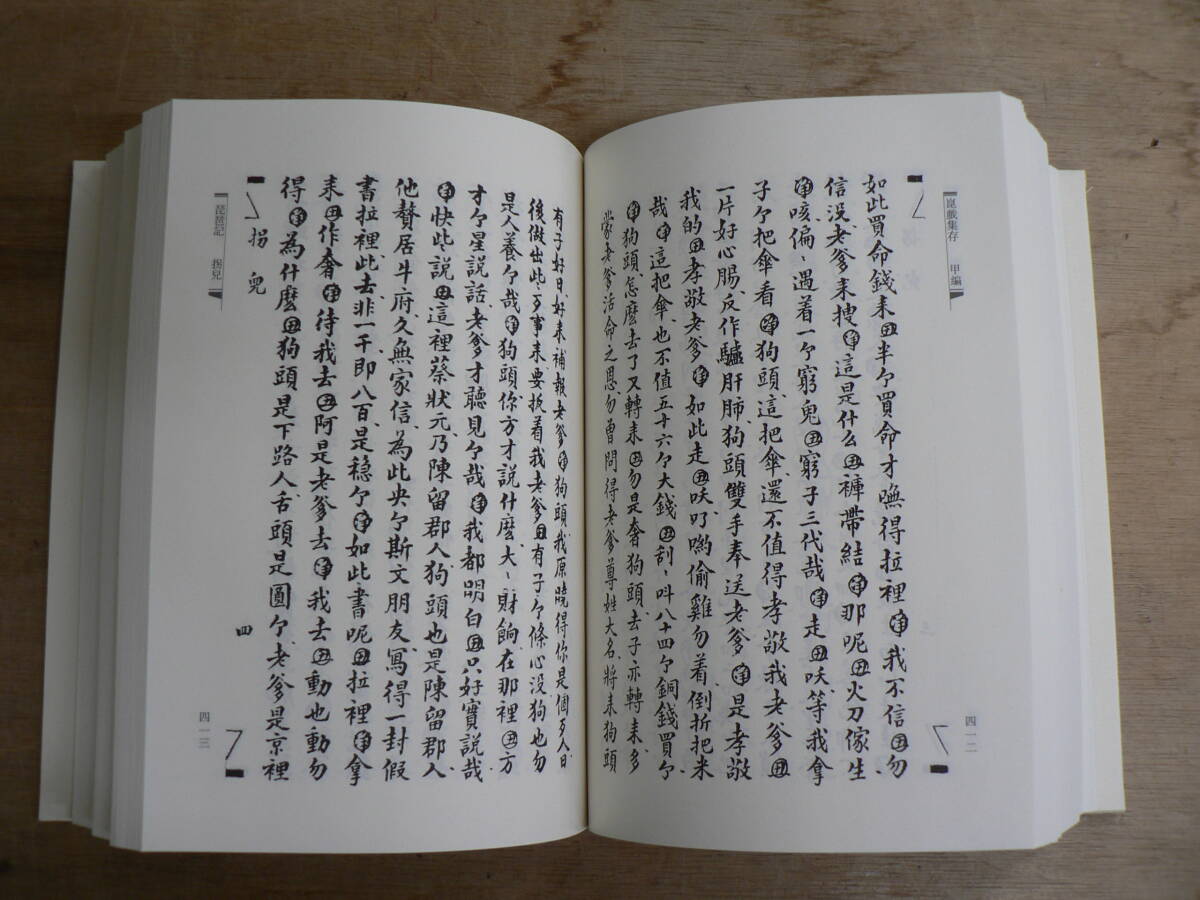 崑戲集存　甲編
如此買命錢来㊀丑半个買命才嘸得拉裡淨我不信丑勿
信没老爹来搜淨這是什么丑褲帶結淨那呢丑火刀傢生
淨咳偏、遇着一个窮鬼丑窮子三代哉淨走丑呅等我拿
子个把傘看淨狗頭這把傘還不值得孝敬我老爹丑
一片好心腸反作驢肝肺狗頭雙手奉送老爹淨是孝敬
我的丑孝敬老爹淨如此走丑呅叮喲偷雞勿着倒折把米
哉淨這把傘也不值五十六个大錢丑刮、叫八十四个銅錢買个
淨狗頭怎麼去了又轉来丑勿是奢狗頭去子亦轉来多
蒙老爹活命之恩勿曾問得老爹尊姓大名將来狗頭
四一二
有子好日好来補報老爹淨狗頭我原曉得你是個歹人日
後做出些歹事来要扳着我老爹丑有子个條心没狗也勿
是人養个哉淨狗頭你方才說什麼大、財餉在那裡丑方
才个星説話老爹才聽見个哉淨我都明白丑只好實説哉
淨快些説丑這裡蔡狀元乃陳留郡人狗頭也是陳留郡人
他贅居牛府久無家信為此央个斯文朋友寫得一封假
書拉裡此去非一千即八百是穏个淨如此書呢丑拉裡淨拿
来丑作奢淨待我去丑阿是老爹去淨我去丑動也動勿
得淨為什麼丑狗頭是下路人舌頭是圓个老爹是京裡
拐兒
四
琵琶記　拐兒
四一三